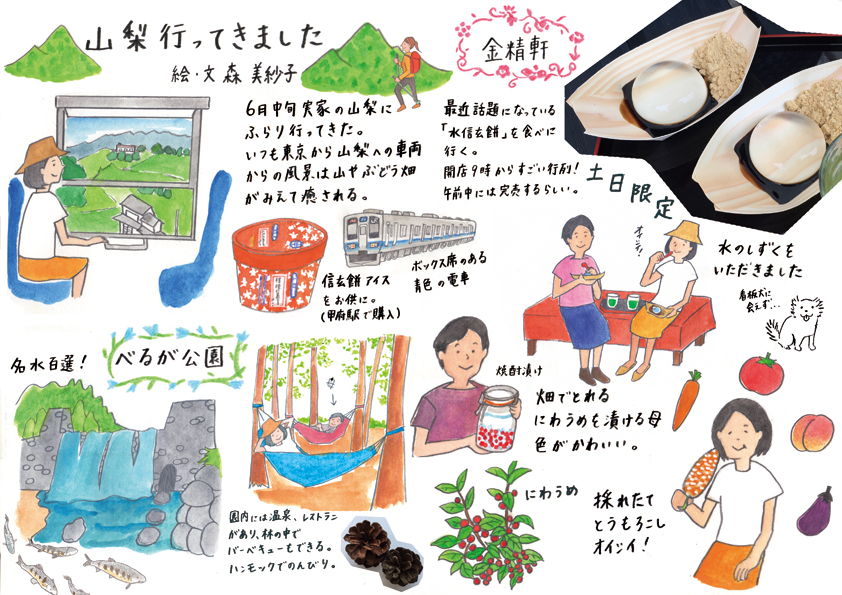 山梨行ってきました
絵・文 森 美紗子
6月中旬 実家の山梨に
ふらり行ってきた。
いつも東京から山梨への車両
からの風景は山やぶどう畑
がみえて癒される。
信玄餅アイス
をお供に。
(甲府駅で購入)
ボックス席のある
青色の電車
金精軒
最近話題になっている
「水信玄餅」を食べに
行く。
開店9時からすごい行列!
午前中には完売するらしい。
土日限定
オイシイ!
水のしずくを
いただきました
看板犬に
会えず…
名水百選!
べるが公園
園内には温泉、レストラン
があり、林の中で
バーベキューもできる。
ハンモックでのんびり。
焼酎漬け
畑でとれる
にわうめを漬ける母
色がかわいい。
にわうめ
採れたて
とうもろこし
オイシイ!